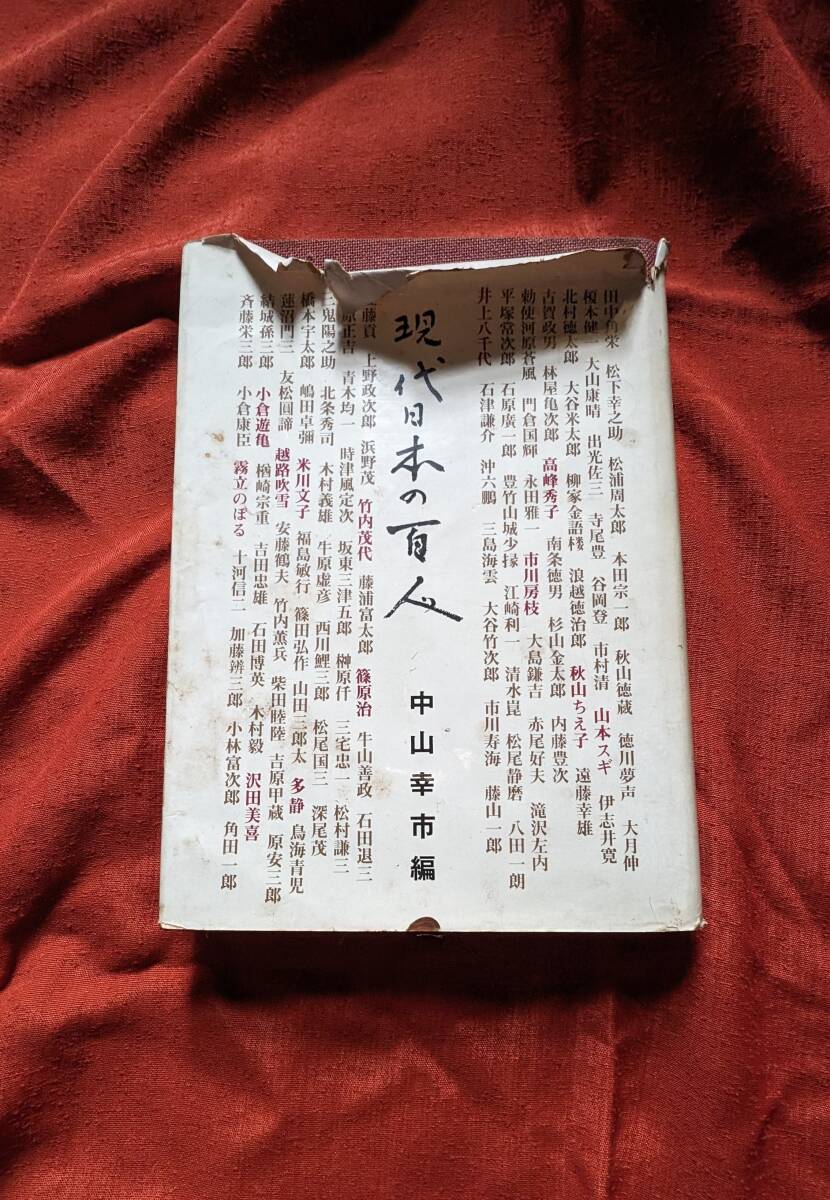 田中角栄 松下幸之助 松浦周太郎 本田宗一郎 秋山徳蔵 徳川夢声 大月伸
榎本健一 大山康晴 出光佐三 寺尾豊 谷岡登 市村清 山本スギ 伊志井寛
北村徳太郎 大谷米太郎 柳家金語楼 浪越徳治郎 秋山ちえ子 遠藤幸雄
古賀政男 林屋亀次郎 高峰秀子 南条徳男 杉山金太郎 内藤豊次
勅使河原蒼風 門倉国輝 永田雅一 市川房枝 大島鎌吉 赤尾好夫 滝沢左内
平塚常次郎 石原廣一郎 豊竹山城少掾 江崎利一 清水崑 松尾静磨 八田一朗
井上八千代 石津謙介 沖六鵬 三島海雲 大谷竹次郎 市川寿海 藤山一郎
現代日本の百人
中山幸市編
藤貢 上野政次郎 浜野茂 竹内茂代 藤浦富太郎 篠原治 牛山善政 石田退三
原正吉 青木均一 時津風定次 坂東三津五郎 榊原仟 三宅忠一 松村謙三
三鬼陽之助 北条秀司 木村義雄 牛原虚彦 西川鯉三郎 松尾国三 深尾茂
橋本宇太郎 嶋田卓彌 米川文子 福島敏行 篠田弘作 山田三郎太 多静 鳥海青児
蓮沼門三 友松圓諦 越路吹雪 安藤鶴夫 竹内薫兵 柴田睦陸 吉原甲蔵 原安三郎
結城孫三郎 小倉遊亀 楢崎宗重 吉田忠雄 石田博英 木村毅 沢田美喜
斉藤栄三郎 小倉康臣 霧立のぼる 十河信二 加藤辨三郎 小林富次郎 角田一郎